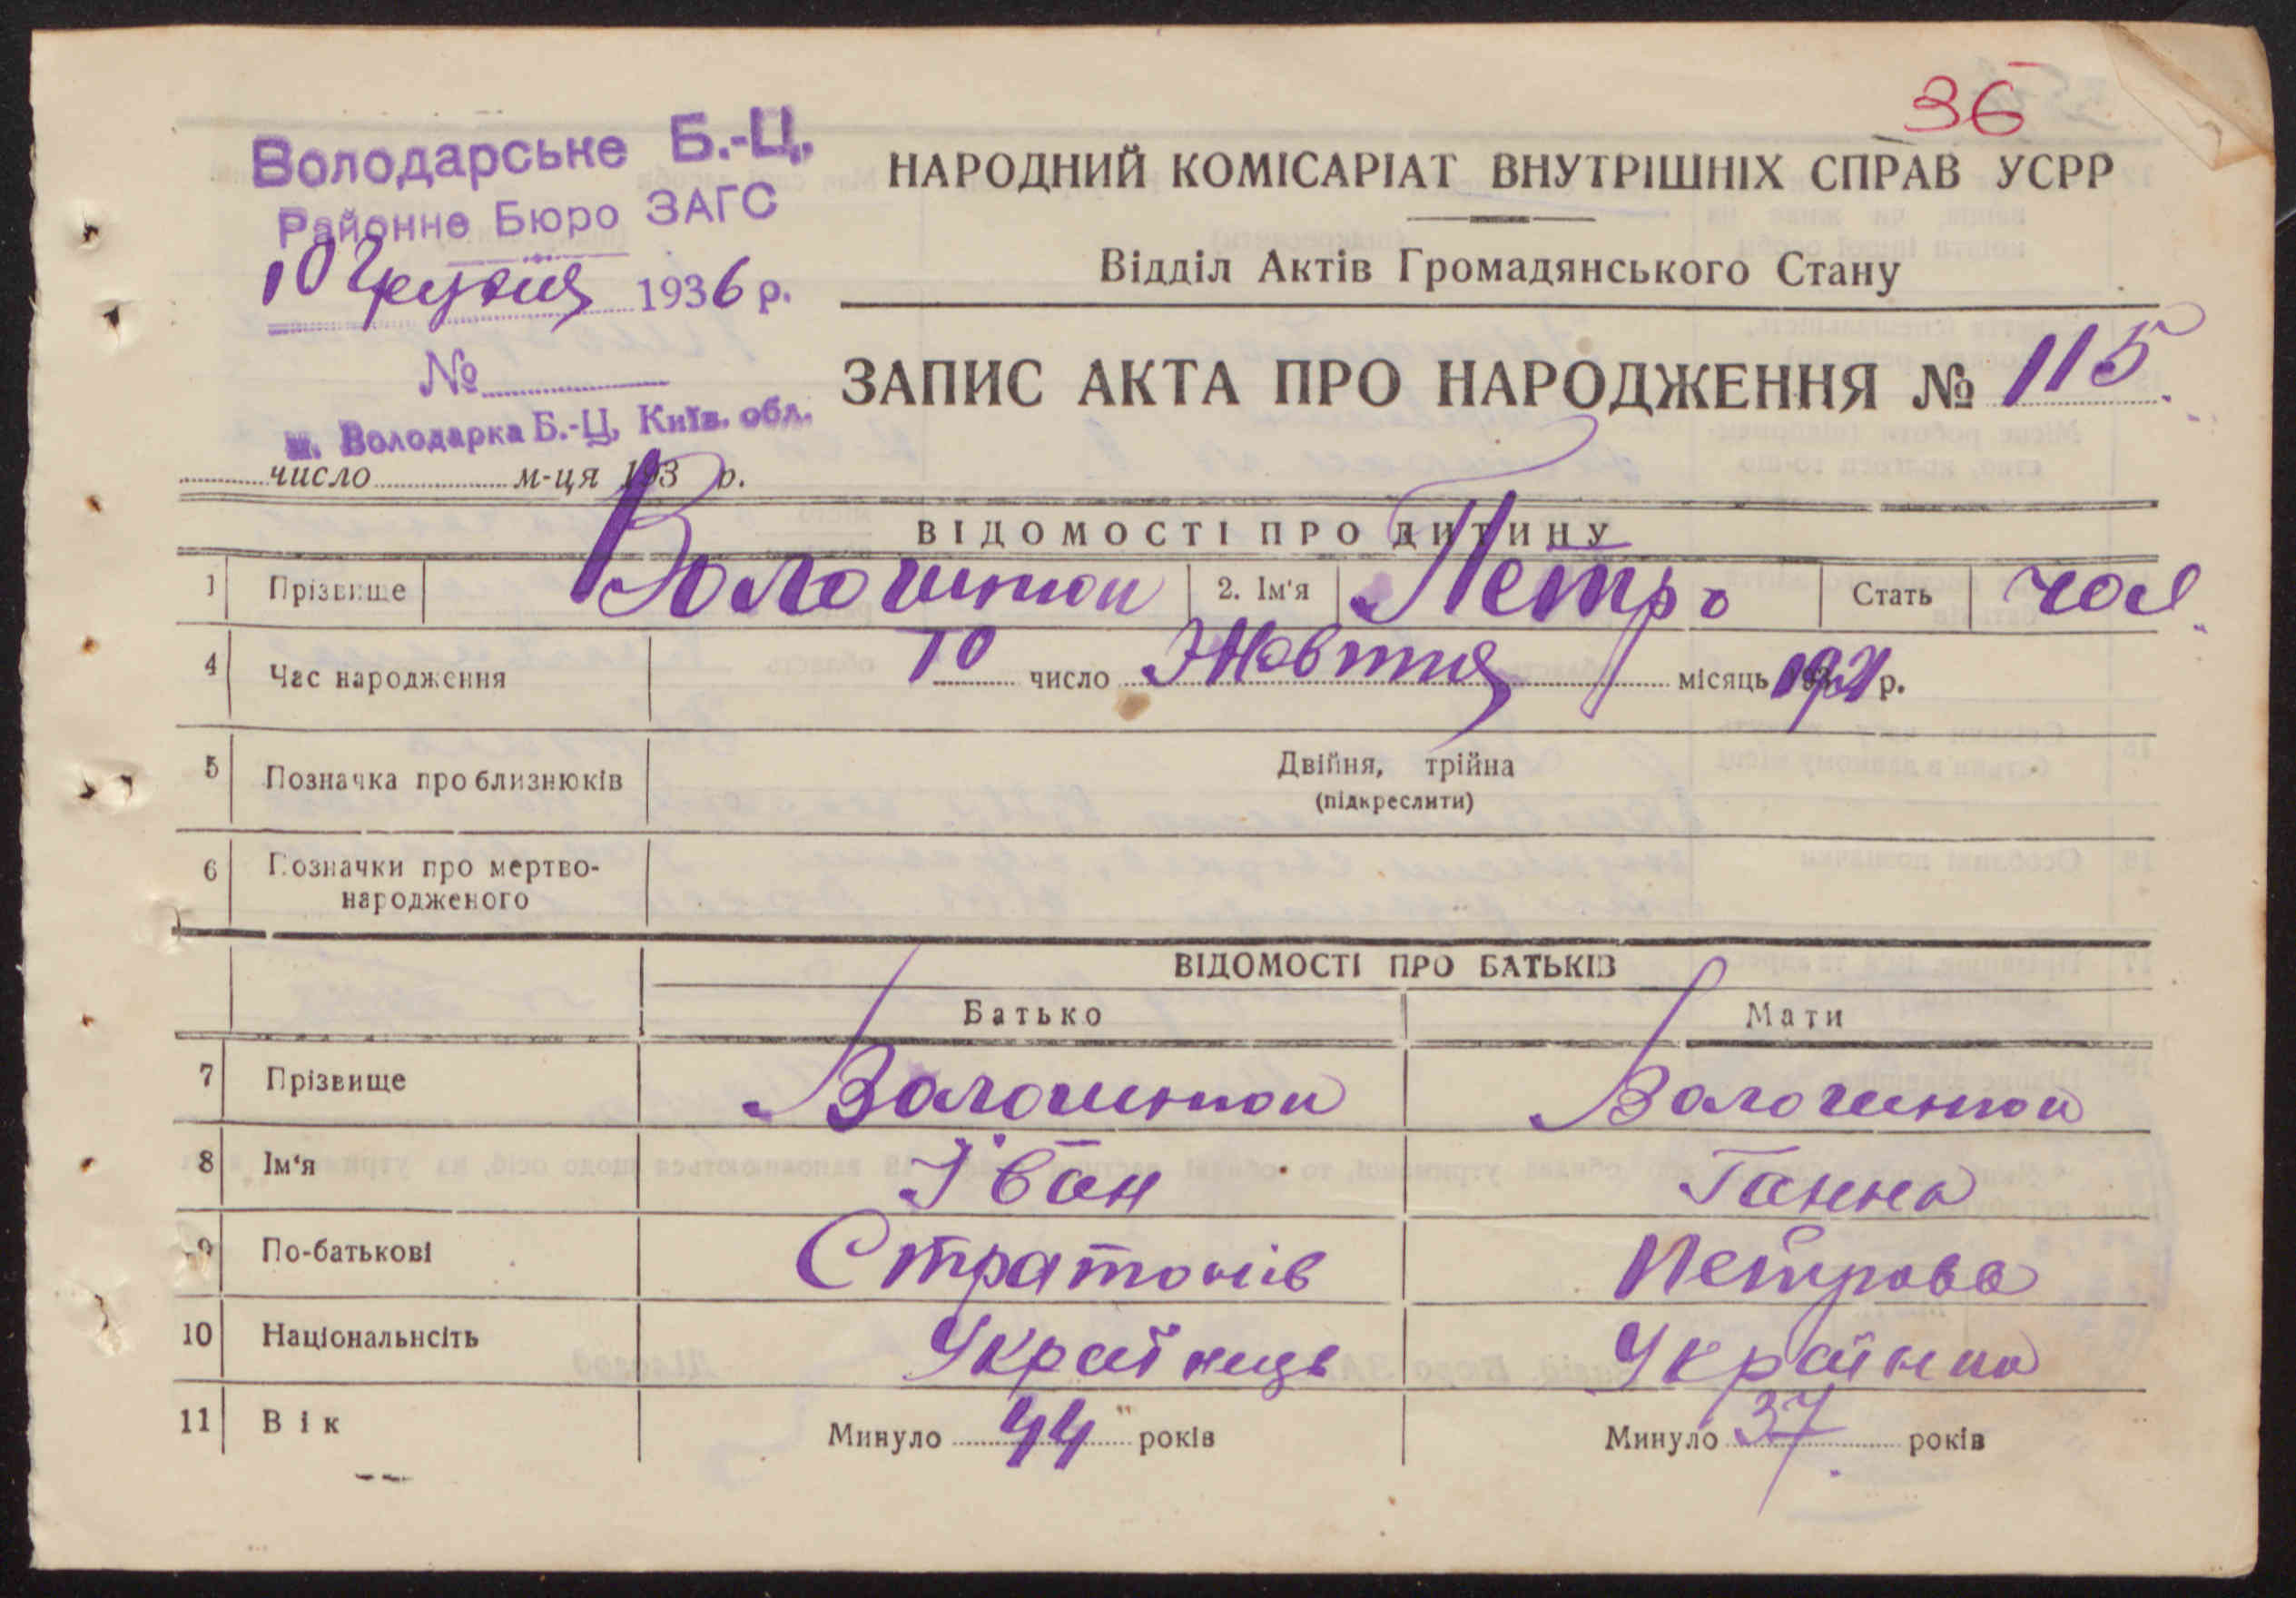 36
Володарське Б.-Ц.
Районне Бюро ЗАГС
10 Грудня 1936 р.
№
м. Володарка Б.-Ц, Київ. обл.
число м-ця 193 р.
НАРОДНИЙ КОМІСАРІАТ ВНУТРІШНІХ СПРАВ УСРР
Відділ Актів Громадянського Стану
ЗАПИС АКТА ПРО НАРОДЖЕННЯ № 115
ВІДОМОСТІ ПРО ДИТИНУ
1 Прізвище 2. Ім'я Петро Стать чол
4 Час народження 10 число Жовтня місяць р.
5 Позначка про близнюків Двійня, трійна
(підкреслити)
6 Позначки про мертво-
народженого
ВІДОМОСТІ ПРО БАТЬКІВ
Батько Мати
7 Прізвище
8 Ім'я Іван Ганна
9 По-батькові Стратонів Петрова
10 Національнсіть Українець Українка
11 Вік Минуло 44 років Минуло 37 років